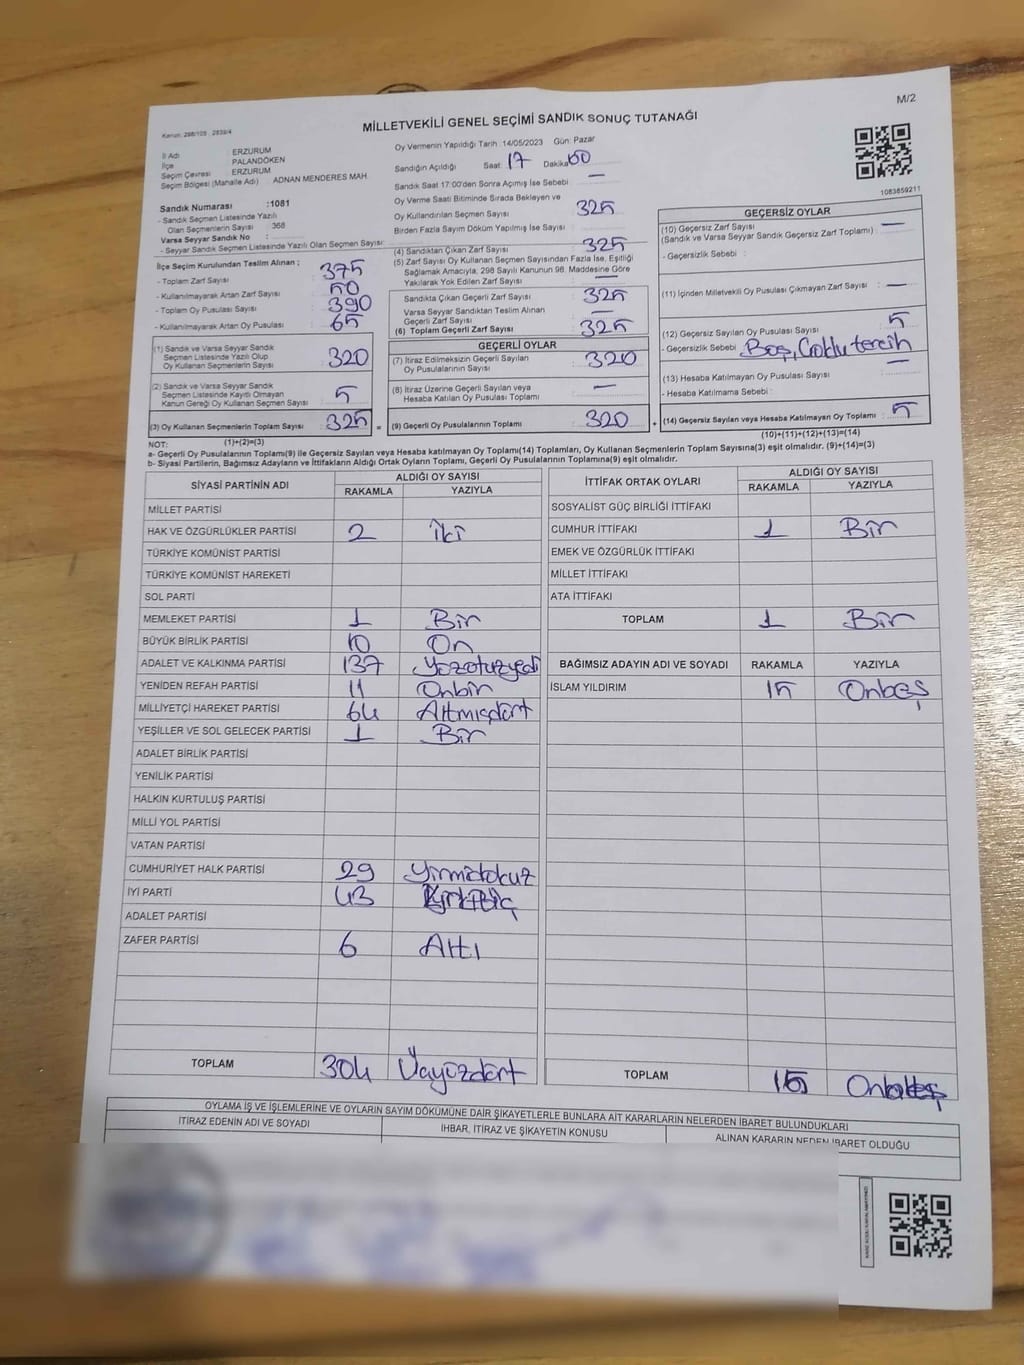 M/2
Kanun: 298/105 , 2839/4
MİLLETVEKİLİ GENEL SEÇİMİ SANDIK SONUÇ TUTANAĞI
İl Adı : ERZURUM
İlçe : PALANDÖKEN
Seçim Çevresi : ERZURUM
Seçim Bölgesi (Mahalle Adı) : ADNAN MENDERES MAH.
Sandık Numarası :1081
- Sandık Seçmen Listesinde Yazılı
Olan Seçmenlerin Sayısı : 368
Varsa Seyyar Sandık No :
- Seyyar Sandık Seçmen Listesinde Yazılı Olan Seçmen Sayısı:
İlçe Seçim Kurulundan Teslim Alınan ;
- Toplam Zarf Sayısı : 375
- Kullanılmayarak Artan Zarf Sayısı : 50
- Toplam Oy Pusulası Sayısı : 390
- Kullanılmayarak Artan Oy Pusulası : 65
(1) Sandık ve Varsa Seyyar Sandık
Seçmen Listesinde Yazılı Olup
Oy Kullanan Seçmenlerin Sayısı : 320
(2) Sandık ve Varsa Seyyar Sandık
Seçmen Listesinde Kayıtlı Olmayan
Kanun Gereği Oy Kullanan Seçmen Sayısı : 5
(3) Oy Kullanan Seçmenlerin Toplam Sayısı : 325 =
Oy Vermenin Yapıldığı Tarih : 14/05/2023 Gün: Pazar
Sandığın Açıldığı Saat: 17 Dakika: 00
Sandık Saat 17:00'den Sonra Açmış İse Sebebi : —
Oy Verme Saati Bitiminde Sırada Bekleyen ve
Oy Kullandırılan Seçmen Sayısı : 325
Birden Fazla Sayım Döküm Yapılmış İse Sayısı :
(4) Sandıktan Çıkan Zarf Sayısı : 325
(5) Zarf Sayısı Oy Kullanan Seçmen Sayısından Fazla İse, Eşitliği
Sağlamak Amacıyla, 298 Sayılı Kanunun 98. Maddesine Göre
Yakılarak Yok Edilen Zarf Sayısı : —
Sandıkta Çıkan Geçerli Zarf Sayısı : 325
Varsa Seyyar Sandıktan Teslim Alınan
Geçerli Zarf Sayısı : —
(6) Toplam Geçerli Zarf Sayısı : 325
GEÇERLİ OYLAR
(7) İtiraz Edilmeksizin Geçerli Sayılan
Oy Pusulalarının Sayısı : 320
(8) İtiraz Üzerine Geçerli Sayılan veya
Hesaba Katılan Oy Pusulası Toplamı : —
(9) Geçerli Oy Pusulalarının Toplamı : 320 +
1083859211
GEÇERSİZ OYLAR
(10) Geçersiz Zarf Sayısı : —
(Sandık ve Varsa Seyyar Sandık Geçersiz Zarf Toplamı)
- Geçersizlik Sebebi :
(11) İçinden Milletvekili Oy Pusulası Çıkmayan Zarf Sayısı : —
(12) Geçersiz Sayılan Oy Pusulası Sayısı : 5
- Geçersizlik Sebebi : Boş, Çoklu tercih
(13) Hesaba Katılmayan Oy Pusulası Sayısı : —
- Hesaba Katılmama Sebebi :
(14) Geçersiz Sayılan veya Hesaba Katılmayan Oy Toplamı : 5
NOT: (1)+(2)=(3) (10)+(11)+(12)+(13)=(14)
a- Geçerli Oy Pusulalarının Toplamı(9) ile Geçersiz Sayılan veya Hesaba katılmayan Oy Toplamı(14) Toplamları, Oy Kullanan Seçmenlerin Toplam Sayısına(3) eşit olmalıdır. (9)+(14)=(3)
b- Siyasi Partilerin, Bağımsız Adayların ve İttifakların Aldığı Ortak Oyların Toplamı, Geçerli Oy Pusulalarının Toplamına(9) eşit olmalıdır.
SİYASİ PARTİNİN ADI ALDIĞI OY SAYISI
RAKAMLA YAZIYLA
MİLLET PARTİSİ
HAK VE ÖZGÜRLÜKLER PARTİSİ 2 İki
TÜRKİYE KOMÜNİST PARTİSİ
TÜRKİYE KOMÜNİST HAREKETİ
SOL PARTİ
MEMLEKET PARTİSİ 1 Bir
BÜYÜK BİRLİK PARTİSİ 10 On
ADALET VE KALKINMA PARTİSİ 137 Yüzotuzyedi
YENİDEN REFAH PARTİSİ 11 Onbir
MİLLİYETÇİ HAREKET PARTİSİ 64 Altmışdört
YEŞİLLER VE SOL GELECEK PARTİSİ 1 Bir
ADALET BİRLİK PARTİSİ
YENİLİK PARTİSİ
HALKIN KURTULUŞ PARTİSİ
MİLLİ YOL PARTİSİ
VATAN PARTİSİ
CUMHURİYET HALK PARTİSİ 29 Yirmidokuz
İYİ PARTİ 43 Kırküç
ADALET PARTİSİ
ZAFER PARTİSİ 6 Altı
TOPLAM 304 Üçyüzdört
İTTİFAK ORTAK OYLARI ALDIĞI OY SAYISI
RAKAMLA YAZIYLA
SOSYALİST GÜÇ BİRLİĞİ İTTİFAKI
CUMHUR İTTİFAKI 1 Bir
EMEK VE ÖZGÜRLÜK İTTİFAKI
MİLLET İTTİFAKI
ATA İTTİFAKI
TOPLAM 1 Bir
BAĞIMSIZ ADAYIN ADI VE SOYADI RAKAMLA YAZIYLA
İSLAM YILDIRIM 15 Onbeş
TOPLAM 15 Onbeş
OYLAMA İŞ VE İŞLEMLERİNE VE OYLARIN SAYIM DÖKÜMÜNE DAİR ŞİKAYETLERLE BUNLARA AİT KARARLARIN NELERDEN İBARET BULUNDUKLARI
İTİRAZ EDENİN ADI VE SOYADI İHBAR, İTİRAZ VE ŞİKAYETİN KONUSU ALINAN KARARIN NEDEN İBARET OLDUĞU